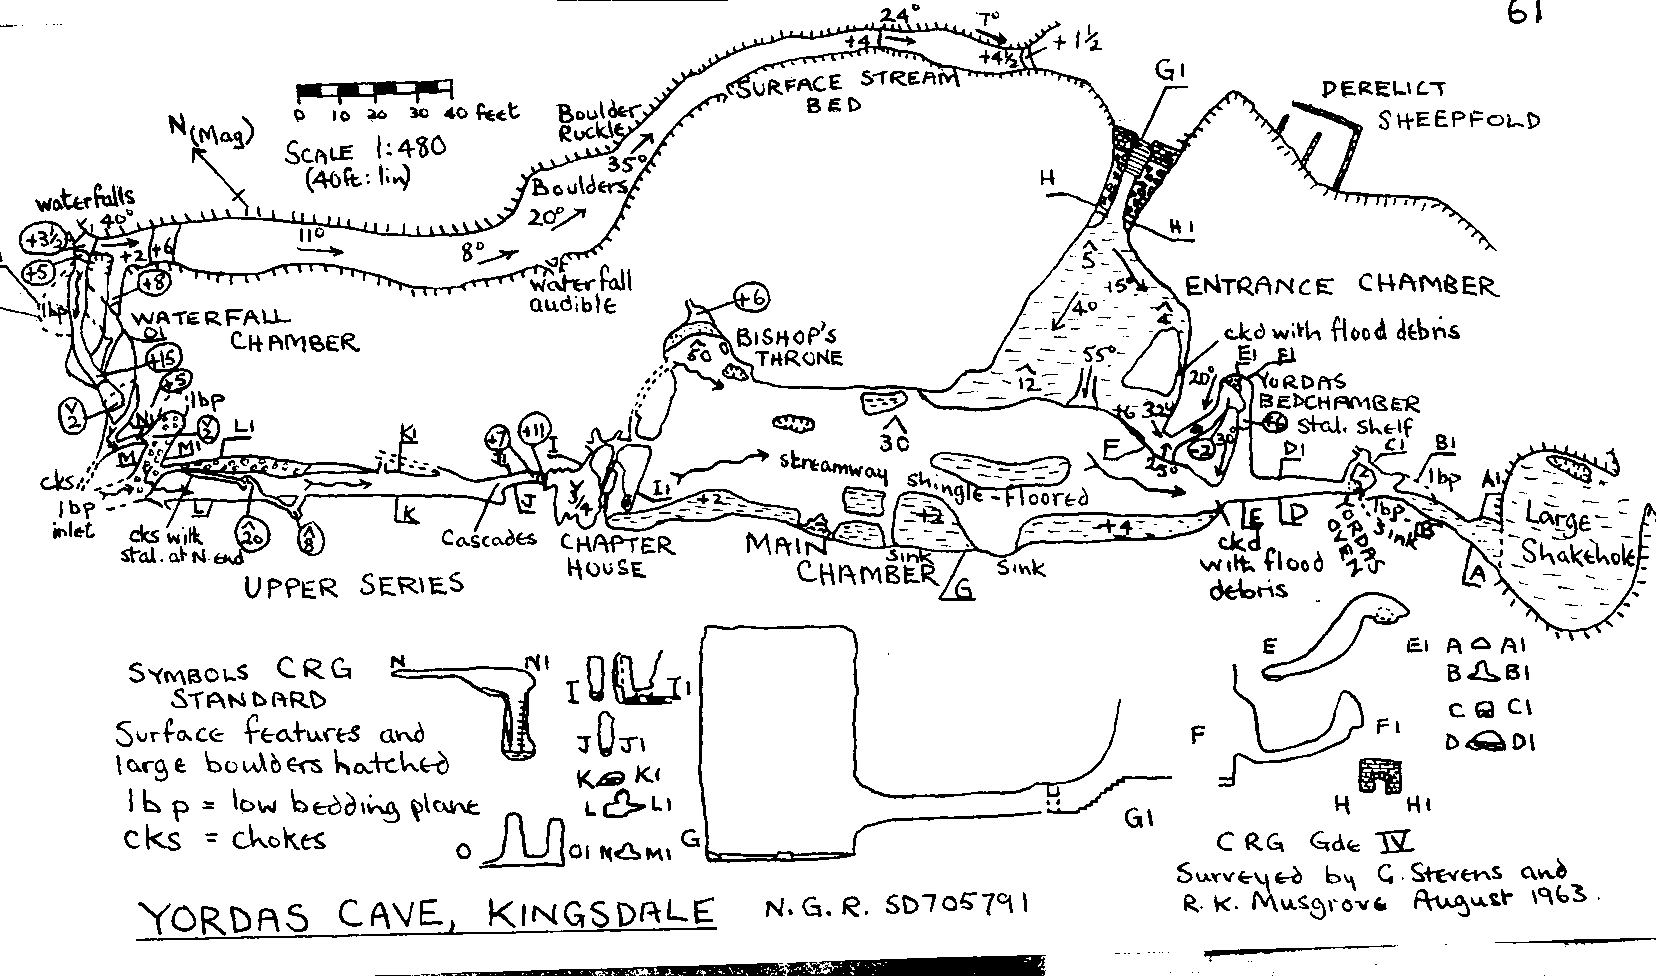 61
24° 7°
+4 +4½ +1½
SURFACE STREAM
BED
G1
DERELICT
SHEEPFOLD
0 10 20 30 40 feet
SCALE 1:480
(40ft: 1in)
N (Mag)
Boulder
Ruckle
35°
Boulders
20°
waterfalls
40°
+3½
+5
+2 +6
+8
11°
8°
waterfall
audible
H
H1
5
+5°
40
4
ENTRANCE CHAMBER
lbp
WATERFALL
CHAMBER
O1
+15
+5
lbp
+6
50
BISHOP'S
THRONE
12
55°
ckd with flood debris
E1
20°
YORDAS
BEDCHAMBER
+6
stal. shelf
+6
F
25°
-2
30°
30
N
M M1
L1
K1
+7
+11
I
I1
streamway
shingle-floored
D1
C1
B1
lbp
A1
Large
Shakehole
cks
lbp
inlet
cks with
stal. at N. end
L
20
8
K
J
Cascades
CHAPTER
HOUSE
+2
MAIN
CHAMBER
+2
sink
G
Sink
+4
E
D
ckd
with flood
debris
YORDAS
OVEN
lbp
sink
B
A
UPPER SERIES
SYMBOLS CRG
STANDARD
Surface features and
large boulders hatched
lbp = low bedding plane
cks = chokes
N N1
I I1
J J1
K K1
L L1
O O1 M M1
G G1
E E1
F F1
H H1
A A1
B B1
C C1
D D1
CRG Gde IV
Surveyed by G. Stevens and
R. K. Musgrove August 1963.
YORDAS CAVE, KINGSDALE N.G.R. SD705791